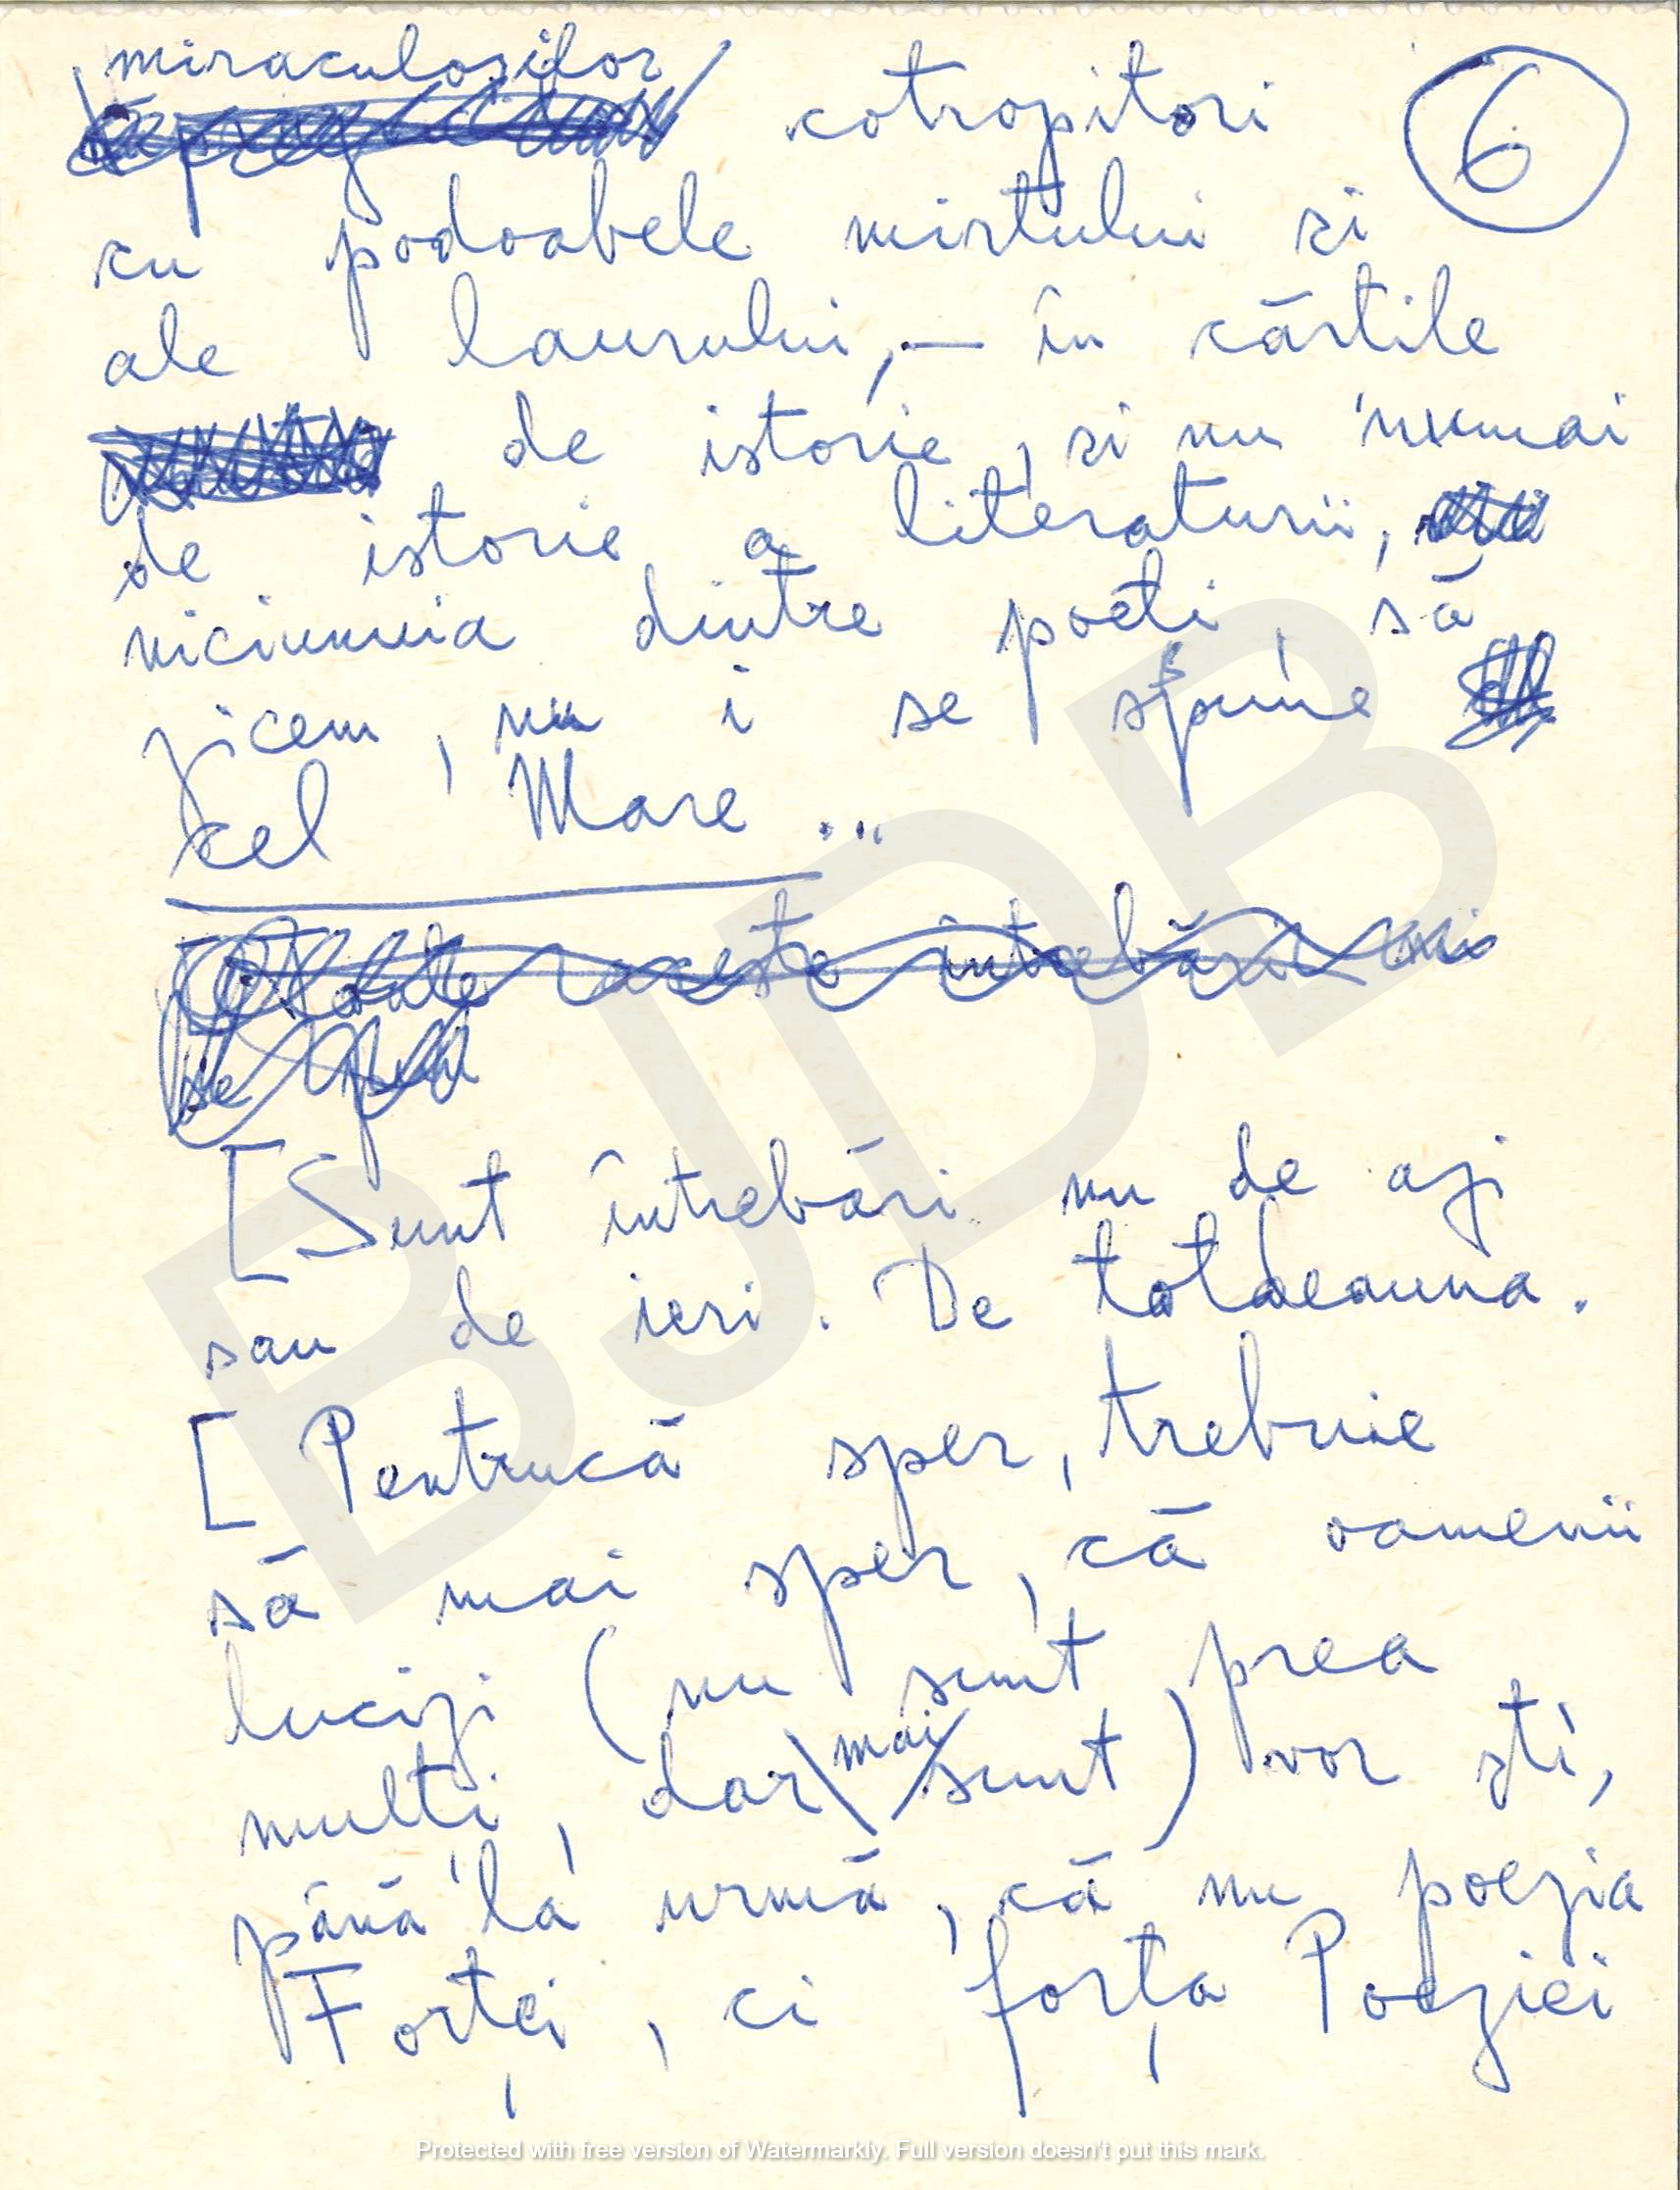 miraculoșilor
cotropitori
6
cu podoabele mirtului și
ale laurului, — în cărțile
de istorie, și nu numai
de istorie a literaturii,
niciunuia dintre poeți, să
zicem, nu i se spune
cel Mare ...
Toate aceste întrebări nu
se
[ Sunt întrebări nu de azi
sau de ieri. De totdeauna.
[ Pentrucă sper, trebuie
să mai sper, că oamenii
lucizi (nu sunt prea
mulți, dar mai sunt) vor ști,
până la urmă, că nu poezia
Forței, ci forța Poeziei
BJDB
Protected with free version of Watermarkly. Full version doesn't put this mark.